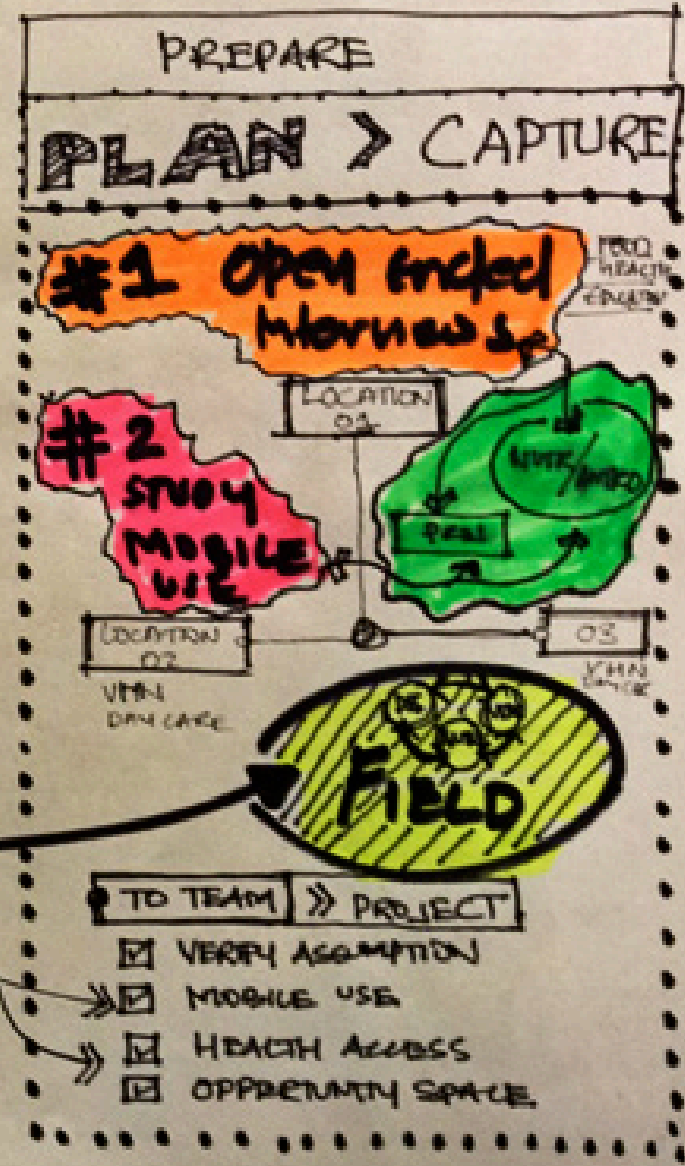 PREPARE
PLAN > CAPTURE
#1 Open Ended
Interviews
FOOD
HEALTH
EDUCATION
LOCATION
01
#2
STUDY
MOBILE
USE
LOCATION
02
03
VMN
DAY CARE
FIELD
TO TEAM >> PROJECT
VERIFY ASSUMPTION
MOBILE USE
HEALTH ACCESS
OPPRETUNITY SPACE